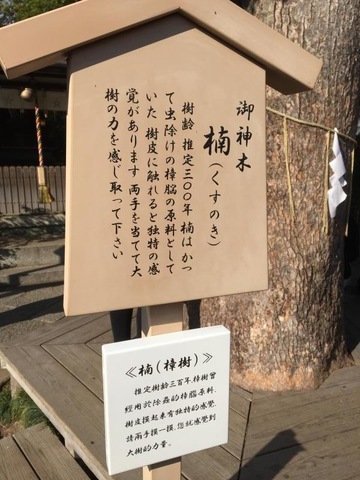 御神木
楠(くすのき)
樹齢 推定三〇〇年 楠はかつ
て虫除けの樟脳の原料として
いた 樹皮に触れると独特の感
覚があります 両手を当てて大
樹の力を感じ取って下さい
《楠(樟樹)》
推定樹齡三百年,樟樹曾
經用於除蟲的樟腦原料,
樹皮摸起來有独特的感覺,
請兩手摸一摸,您就感覺到
大樹的力量。